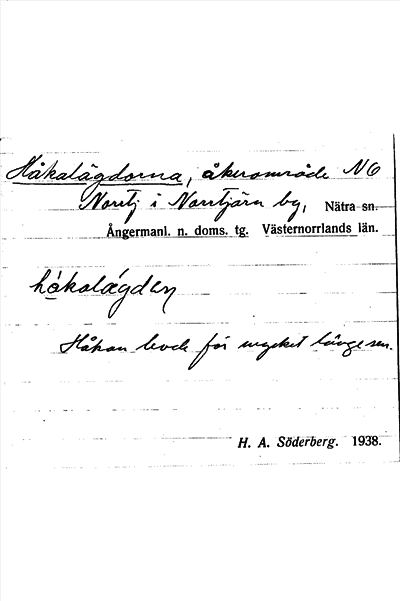 Håkalägdorna, åkerområde NO
Norrtj i Norrtjärn bg, Nätra sn.
Ångermanl. n. doms. tg. Västernorrlands län.
hákalágdeṇ
Håkan levde för mycket länge sen.
H. A. Söderberg. 1938.